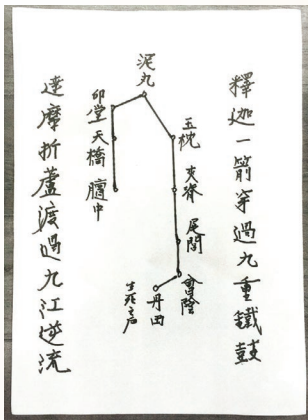 釋迦一箭穿過九重鐵鼓
泥丸
玉枕
夾脊
尾閭
會陰
丹田
生死之戶
印堂
天橋
膻中
達摩折蘆渡過九江逆流